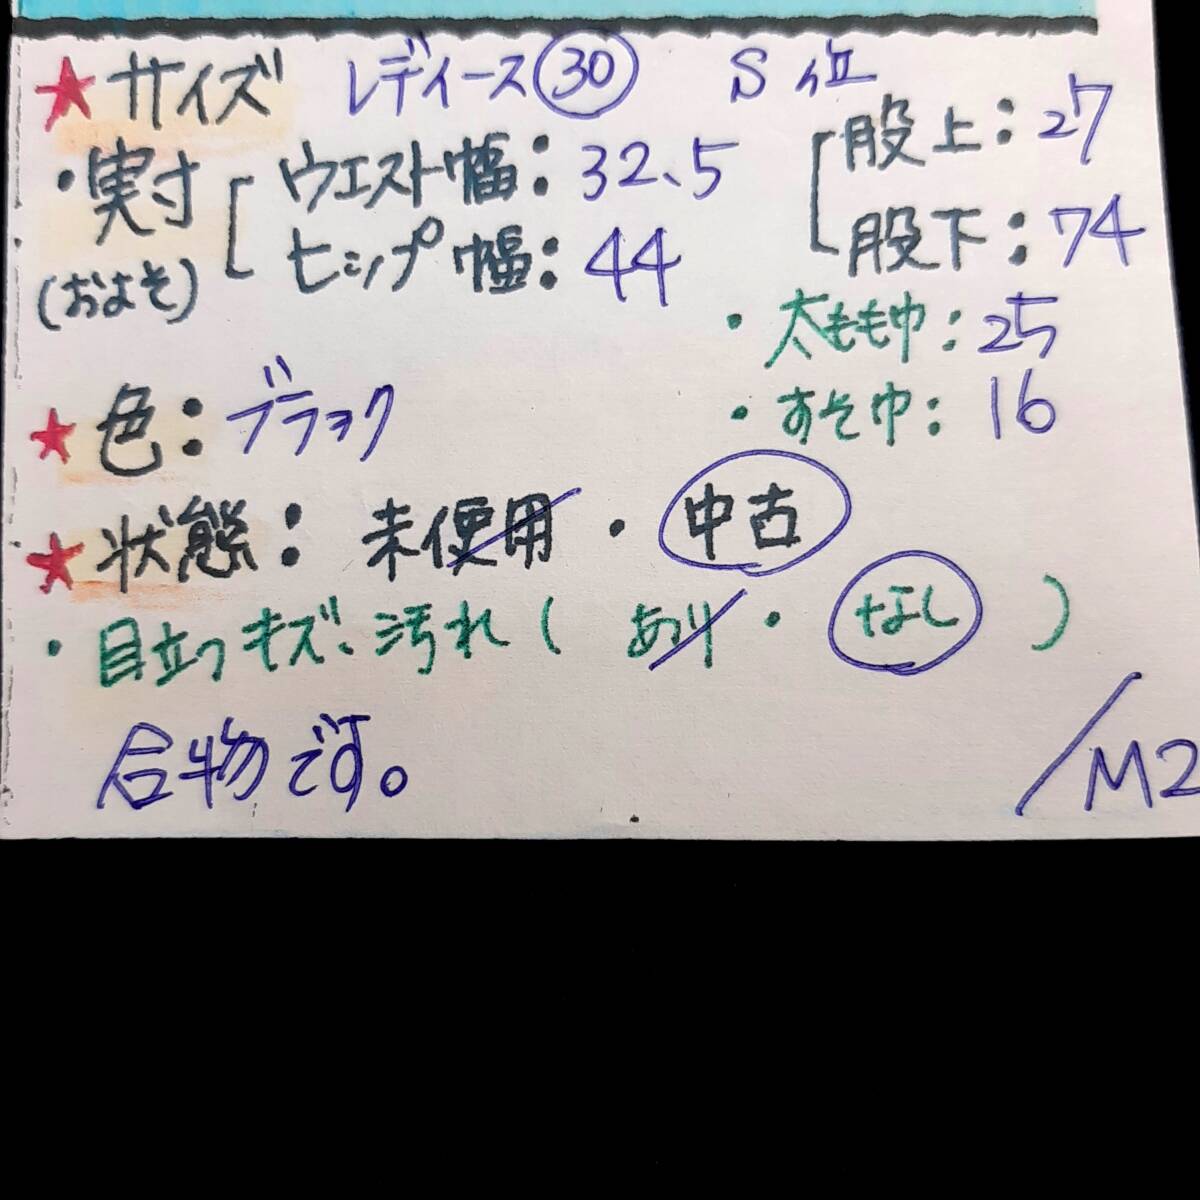 ★サイズ レディース㉚ S位
・実寸 ウエスト幅：32、5 股上：27
(およそ) ヒップ幅：44 股下：74
・太もも巾：25
★色：ブラック ・すそ巾：16
★状態：未使用・中古
・目立つキズ、汚れ（あり・なし）
合物です。 /M2